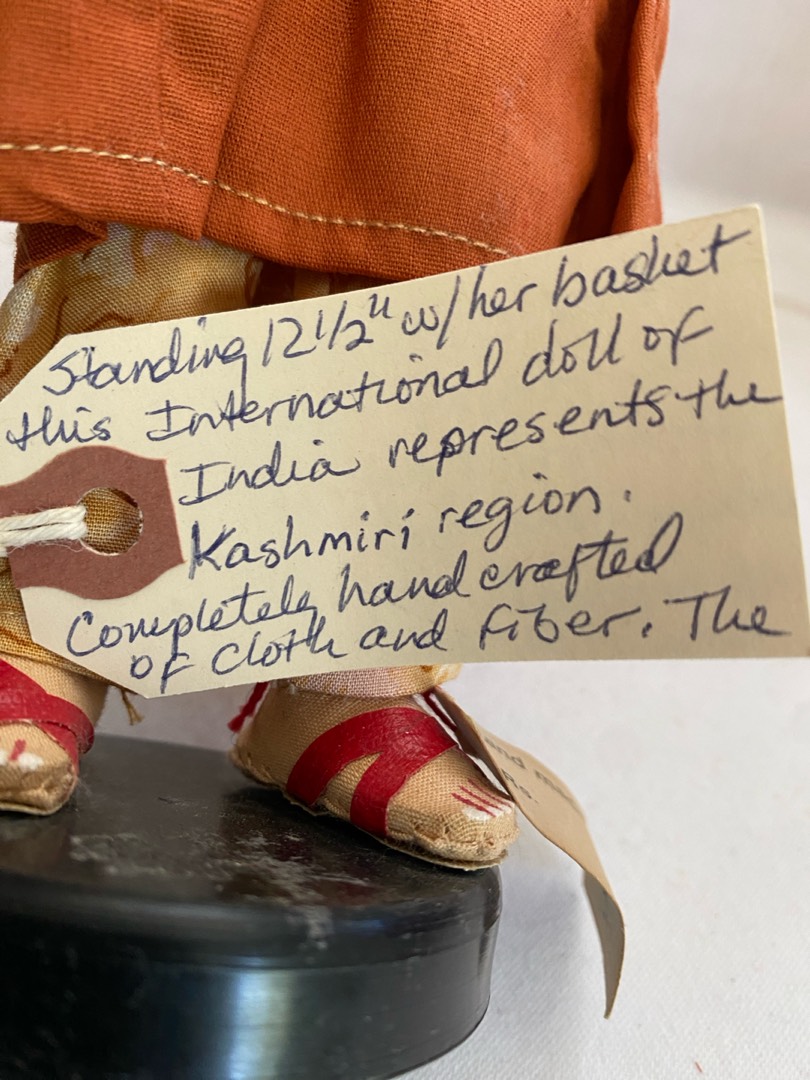 Standing 12 1/2" w/her basket
this International doll of
India represents the
Kashmiri region.
Completely handcrafted
of cloth and fiber. The
nd m
Rs.